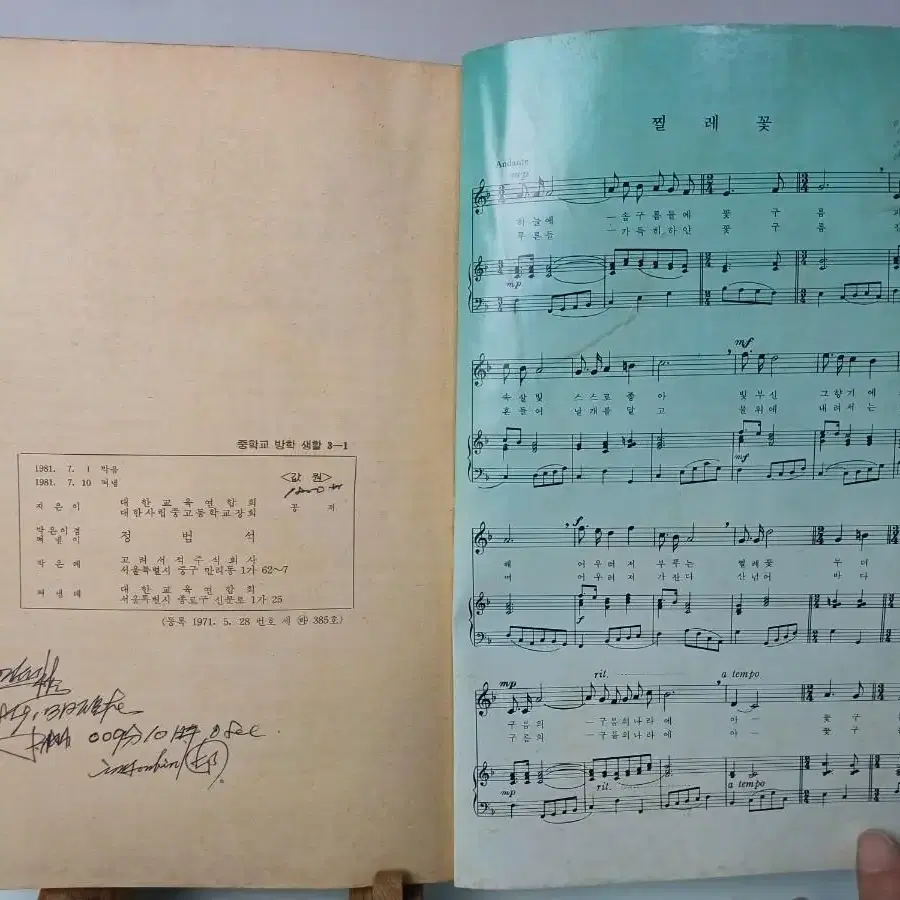 중학교 방학 생활 3—1
1981. 7. 1 박음
1981. 7. 10 펴냄
<값 원>
지은이 대한교육연합회
대한사립중고등학교장회 공저
박은이겸
펴낸이 정범석
박은데 고려서적주식회사
서울특별시 중구 만리동 1가 62~7
펴낸데 대한교육연합회
서울특별시 종로구 신문로 1가 25
(등록 1971. 5. 28 번호 제 ㉳ 385호)
찔레꽃
Andante
mp
하늘에 —솜구름들에 꽃구름
푸른들 —가득히하얀 꽃구름
mp
mf
속살빛 스스로좋아 빛부신 그향기에
흔들어 날개를달고 물위에 내려서는
mf
f
해 어우러져 부르는 찔레꽃 무더
며 어우러져 가잔다 산넘어 바다
f
mp rit. a tempo
구름의 —구름의나라에 아— 꽃구
구름의 —구름의나라에 아— 꽃구
mp rit. a tempo